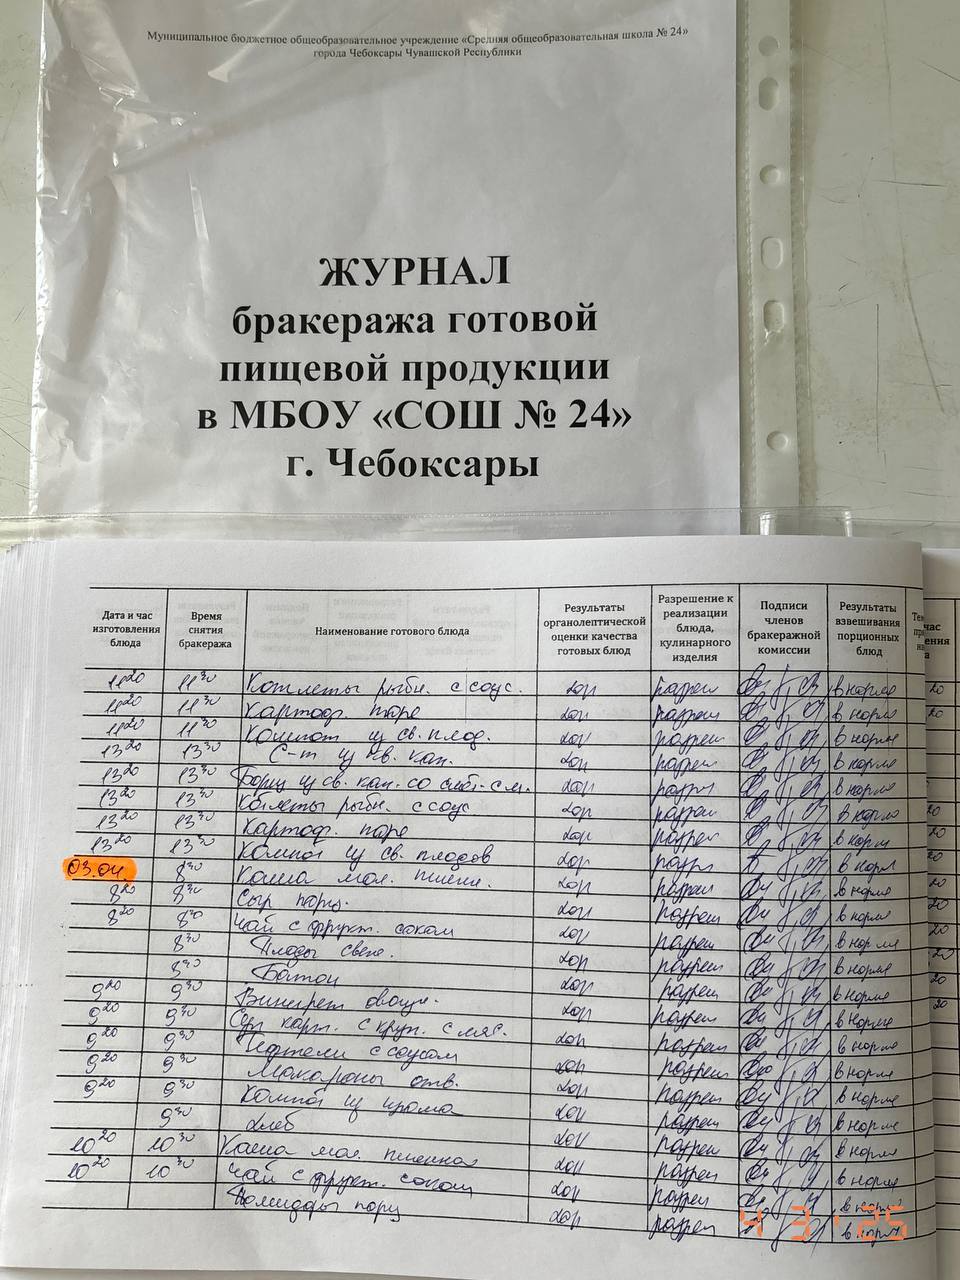 Муниципальное бюджетное общеобразовательное учреждение «Средняя общеобразовательная школа № 24»
города Чебоксары Чувашской Республики
ЖУРНАЛ
бракеража готовой
пищевой продукции
в МБОУ «СОШ № 24»
г. Чебоксары
Дата и час изготовления блюда Время снятия бракеража Наименование готового блюда Результаты органолептической оценки качества готовых блюд Разрешение к реализации блюда, кулинарного изделия Подписи членов бракеражной комиссии Результаты взвешивания порционных блюд
11 20 11 30 Котлеты рыбн. с соус. хор разреш в норме 20
11 20 11 30 Картоф. пюре хор разреш в норме 20
11 20 11 30 Компот из св. плод. хор разреш в норме
13 20 13 30 С-т из св. кап. хор разреш в норме
13 20 13 30 Борщ из св. кап. со хор разреш в норме
13 20 13 30 Котлеты рыбн. с соус хор разреш в норме 20
13 20 13 30 Картоф. пюре хор разреш в норм 20
13 20 13 30 Компот из св. плодов хор разреш в норм 20
03.04. 8 30 Каша мол. пшени. хор разреш в норме 20
8 20 8 30 Сыр порц. хор разреш в норме 20
8 20 8 30 Чай с фрукт. соком хор разреш в норме 20
8 30 Плоды свеж. хор разреш в норме 20
8 30 Батон хор разреш в норме 20
9 20 9 30 Винегрет овощн. хор разреш в норме 20
9 20 9 30 Суп карт. с круп. с мяс. хор разреш в норме
9 20 9 30 с соусом хор разреш в норме
9 20 9 30 Макароны отв. хор разреш в норме
9 20 9 30 Компот из хор разреш в норме
9 30 Хлеб хор разреш в норме
10 20 10 30 Каша мол. пшенная хор разреш в норме
10 20 10 30 Чай с фрукт. соком хор разреш в норме
Помидоры порц хор разреш в норм
4 3 ' 25